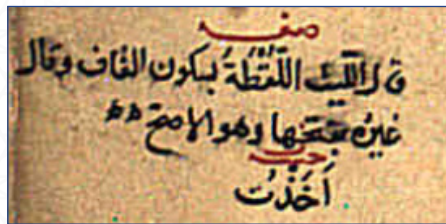 منه
قال الليث اللُّقْطَةُ بسكون القاف وقال
غيره بفتحها وهو الاصح
أَخَذْتُ